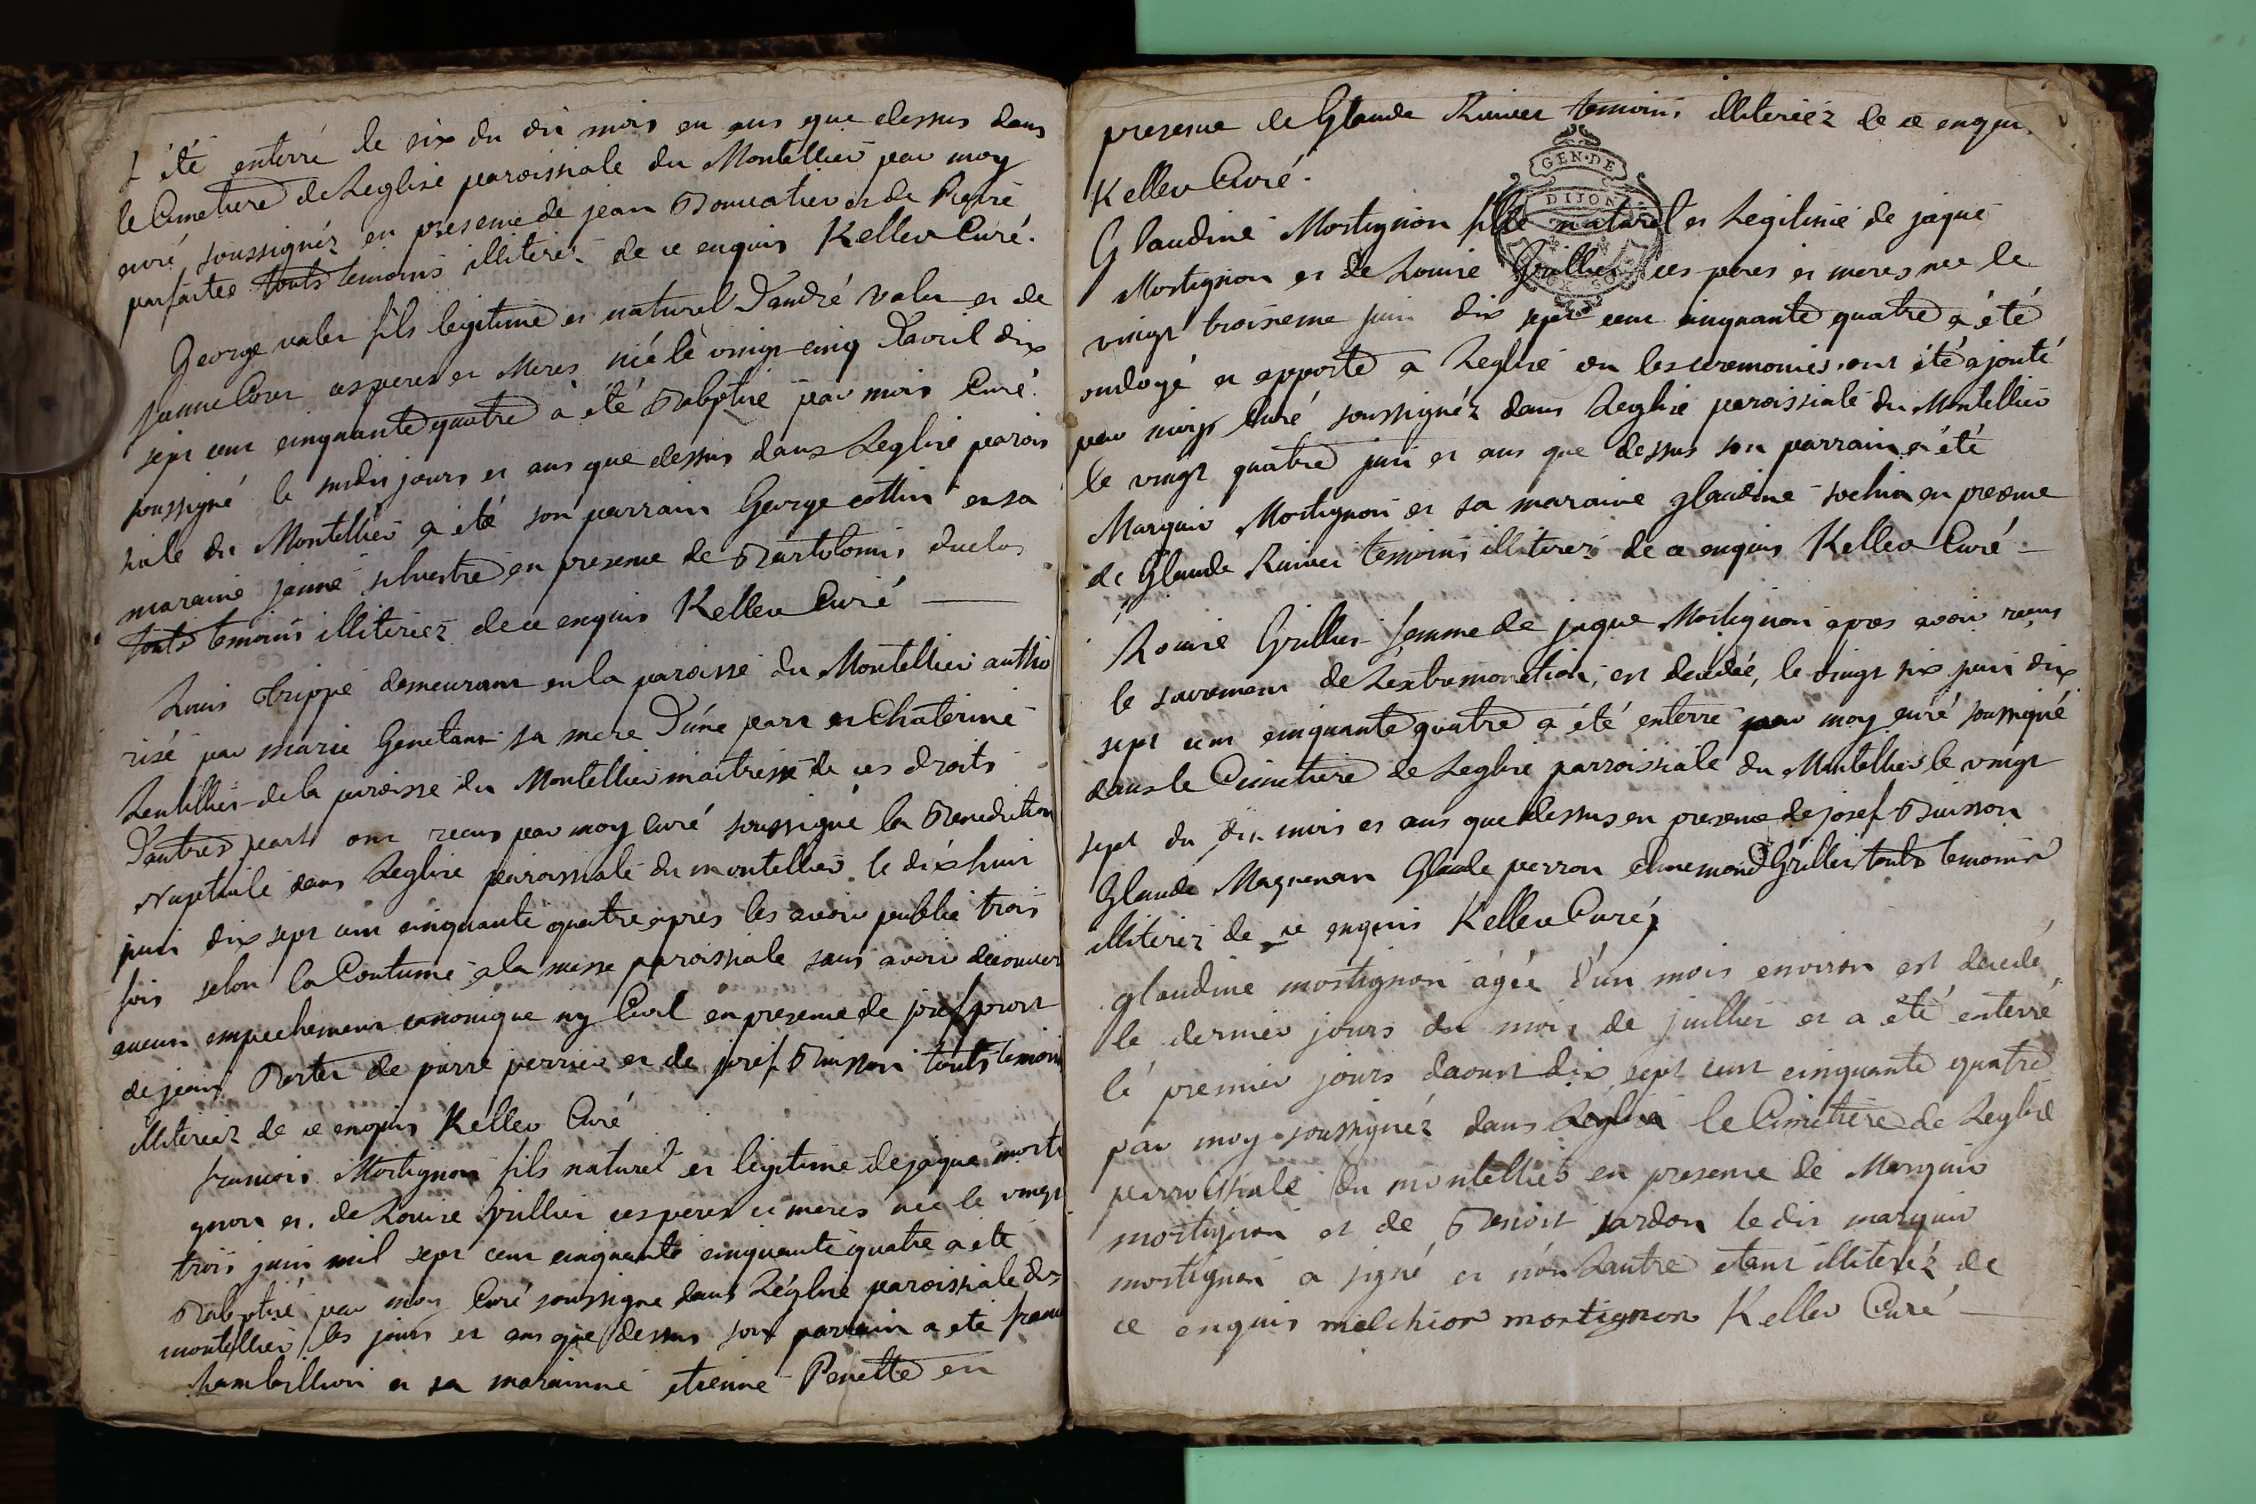 a été enterré le six du dit mois en ans que dessus dans
le Cimetiere de Leglise paroissiale du Montellier par moy
curé soussignéz en presense de jean Boucatier et de Pierre
parfaites touts temoins illiterez de ce enquis Keller Curé.
George valer fils legitime et naturel Dandré valer et de
janne Corer ces peres et Meres née le vingt cinq Davril dix
sept cent cinquante quatre à été Babptisé par mois Curé
soussigné le susdit jours et ans que dessus dans Leglise parois
siale du Montellier a été son parrain George cottin et sa
maraine janne silvestre en presense de Bartolomis duclos
touts temoins illiteriez de ce enquis Keller Curé
Louis trippé demeurant en la paroisse du Montellier autho
risé par marie Genetant sa mere D'une part et Chaterine
Lentillier de la paroisse du Montellier maitresse de ces droits
D'autres part ont recus par moy Curé soussigné la Benediction
Nuptiale dans Leglise paroissiale du montellier le dix huit
juin dix sept cent cinquante quatre apres les avoir publié trois
fois selon la Coutume a la messe paroissiale sans avoir decouver
aucun empechement canonique ny Civil en presense de josef prost
de jean Borter de pierre perrier et de josef Buisson touts temoins
illiteriez de ce enquis Keller Curé
francois Mortignon fils naturel et legitime de jaque morti
gnon et de Louise Grillier ces peres et meres née le vingt
trois juin mil sept cent cinquante cinquante quatre a été
Babptisé par moy Curé soussigne dans Léglise paroissiale du
montellier les jours et ans que dessus son parrain a ete franc
hambillion et sa marainne etienne Penette en
presense de Glaude Rinier temoins illiteriéz de ce enquis
Keller Curé.
Glaudine Mortignon fille naturel et Legitime de jaque
Mortignon et de Louise Grillier ces peres et meres nee le
vingt troiseme juin dix sept cent cinquante quatre a été
ondoyé et apporté a Leglise ou les ceremonies ont été ajouté
par moy Curé soussignéz dans Leglise paroissiale du Montellier
le vingt quatre juin et ans que dessus son parrain a été
Marquir Mortignon et sa maraine glaudine sochin en presense
de Glaude Rinier temoins illiterez de ce enquis Keller Curé
Louise Grillier femme de jaque Mortignon apres avoir recus
le sacrement de Lextremonction, est decedée, le vingt six juin dix
sept cent cinquante quatre a été enterré par moy curé soussigné
dans le Cimetiere de Leglise parroissiale du Montellier le vingt
sept du dit mois et ans que dessus en presense de josef Buisson
Glaude Magnenan Glaude perron ennemond Grillier touts temoins
illiterez de ce enquis Keller Curé
glaudine mortignon agée d'un mois environ est decedé
le dernier jours du mois de juillier et a été enterré
le premier jours daoust dix sept cent cinquante quatre
par moy soussignéz dans Leglise le Cimetiere de Leglise
parroissiale du montellier en presense de Marquir
mortignon et de Benoist jardon le dit marquir
mortignon a signé et nón Lautre etant illiteréz de
ce enquis melchior mortignon Keller Curé
GEN·DE
DIJON